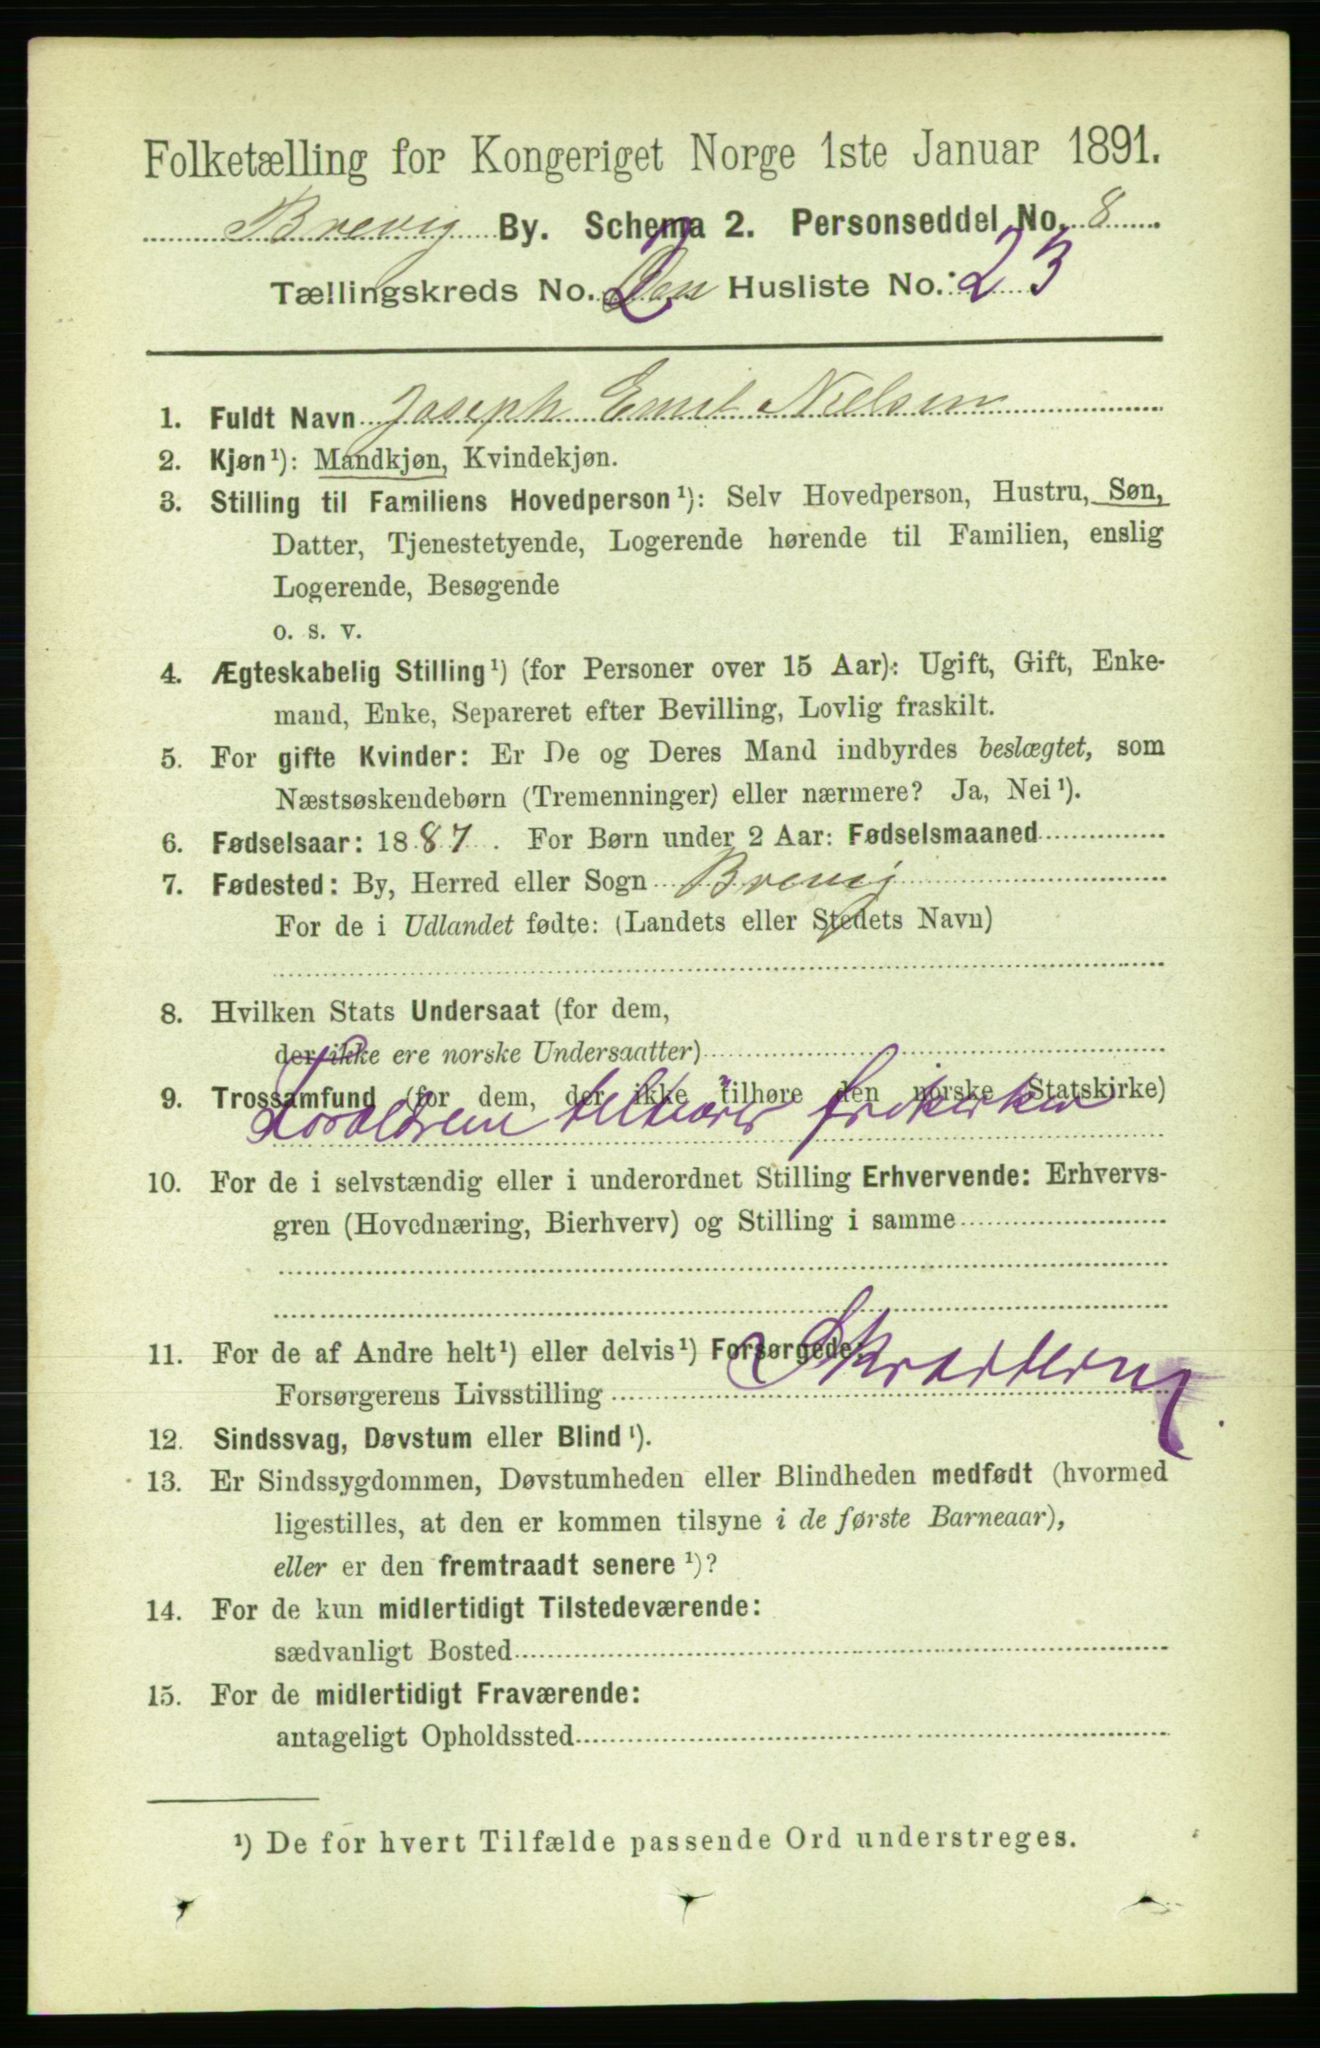 Folketælling for Kongeriget Norge 1ste Januar 1891.
Brevig By. Schema 2. Personseddel No. 8
Tællingskreds No. 2 Husliste No. 23
1. Fuldt Navn Joseph Emil Nielsen
2. Kjøn¹): Mandkjøn, Kvindekjøn.
3. Stilling til Familiens Hovedperson¹): Selv Hovedperson, Hustru, Søn,
Datter, Tjenestetyende, Logerende hørende til Familien, enslig
Logerende, Besøgende
o. s. v.
4. Ægteskabelig Stilling¹) (for Personer over 15 Aar): Ugift, Gift, Enke-
mand, Enke, Separeret efter Bevilling, Lovlig fraskilt.
5. For gifte Kvinder: Er De og Deres Mand indbyrdes beslægtet, som
Næstsøskendebørn (Tremenninger) eller nærmere? Ja, Nei¹).
6. Fødselsaar: 1887. For Børn under 2 Aar: Fødselsmaaned
7. Fødested: By, Herred eller Sogn Brevig
For de i Udlandet fødte: (Landets eller Stedets Navn)
8. Hvilken Stats Undersaat (for dem,
der ikke ere norske Undersaatter)
9. Trossamfund (for dem, der ikke tilhøre den norske Statskirke)
Foreldrene tilhører frikirken
10. For de i selvstændig eller i underordnet Stilling Erhvervende: Erhvervs-
gren (Hovednæring, Bierhverv) og Stilling i samme
11. For de af Andre helt¹) eller delvis¹) Forsørgede:
Forsørgerens Livsstilling
12. Sindssvag, Døvstum eller Blind¹).
13. Er Sindssygdommen, Døvstumheden eller Blindheden medfødt (hvormed
ligestilles, at den er kommen tilsyne i de første Barneaar),
eller er den fremtraadt senere¹)?
14. For de kun midlertidigt Tilstedeværende:
sædvanligt Bosted
15. For de midlertidigt Fraværende:
antageligt Opholdssted
¹) De for hvert Tilfælde passende Ord understreges.